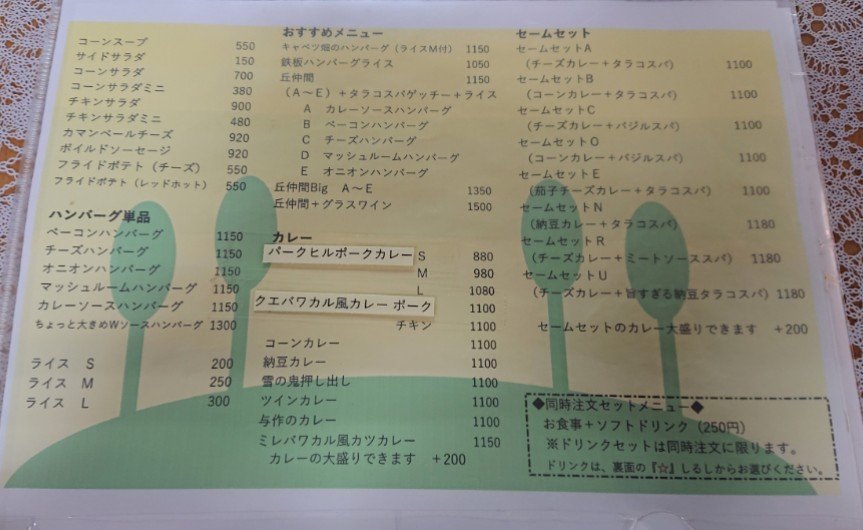 コーンスープ 550
サイドサラダ 150
コーンサラダ 700
コーンサラダミニ 380
チキンサラダ 900
チキンサラダミニ 480
カマンベールチーズ 920
ボイルドソーセージ 920
フライドポテト（チーズ） 550
フライドポテト（レッドホット） 550
ハンバーグ単品
ベーコンハンバーグ 1150
チーズハンバーグ 1150
オニオンハンバーグ 1150
マッシュルームハンバーグ 1150
カレーソースハンバーグ 1150
ちょっと大きめWソースハンバーグ 1300
ライス S 200
ライス M 250
ライス L 300
おすすめメニュー
キャベツ畑のハンバーグ（ライスM付） 1150
鉄板ハンバーグライス 1050
丘仲間 1150
（A～E）＋タラコスパゲッチー＋ライス
A カレーソースハンバーグ
B ベーコンハンバーグ
C チーズハンバーグ
D マッシュルームハンバーグ
E オニオンハンバーグ
丘仲間Big A～E 1350
丘仲間＋グラスワイン 1500
カレー
パークヒルポークカレー S 880
M 980
L 1080
クエバワカル風カレー ポーク 1100
チキン 1100
コーンカレー 1100
納豆カレー 1100
雪の鬼押し出し 1100
ツインカレー 1100
与作のカレー 1100
ミレバワカル風カツカレー 1150
カレーの大盛りできます ＋200
セームセット
セームセットA
（チーズカレー＋タラコスパ） 1100
セームセットB
（コーンカレー＋タラコスパ） 1100
セームセットC
（チーズカレー＋バジルスパ） 1100
セームセットO
（コーンカレー＋バジルスパ） 1100
セームセットE
（茄子チーズカレー＋タラコスパ） 1100
セームセットN
（納豆カレー＋タラコスパ） 1180
セームセットR
（チーズカレー＋ミートソーススパ） 1180
セームセットU
（チーズカレー＋旨すぎる納豆タラコスパ） 1180
セームセットのカレー大盛りできます ＋200
◆同時注文セットメニュー◆
お食事＋ソフトドリンク（250円）
※ドリンクセットは同時注文に限ります。
ドリンクは、裏面の『☆』しるしからお選びください。